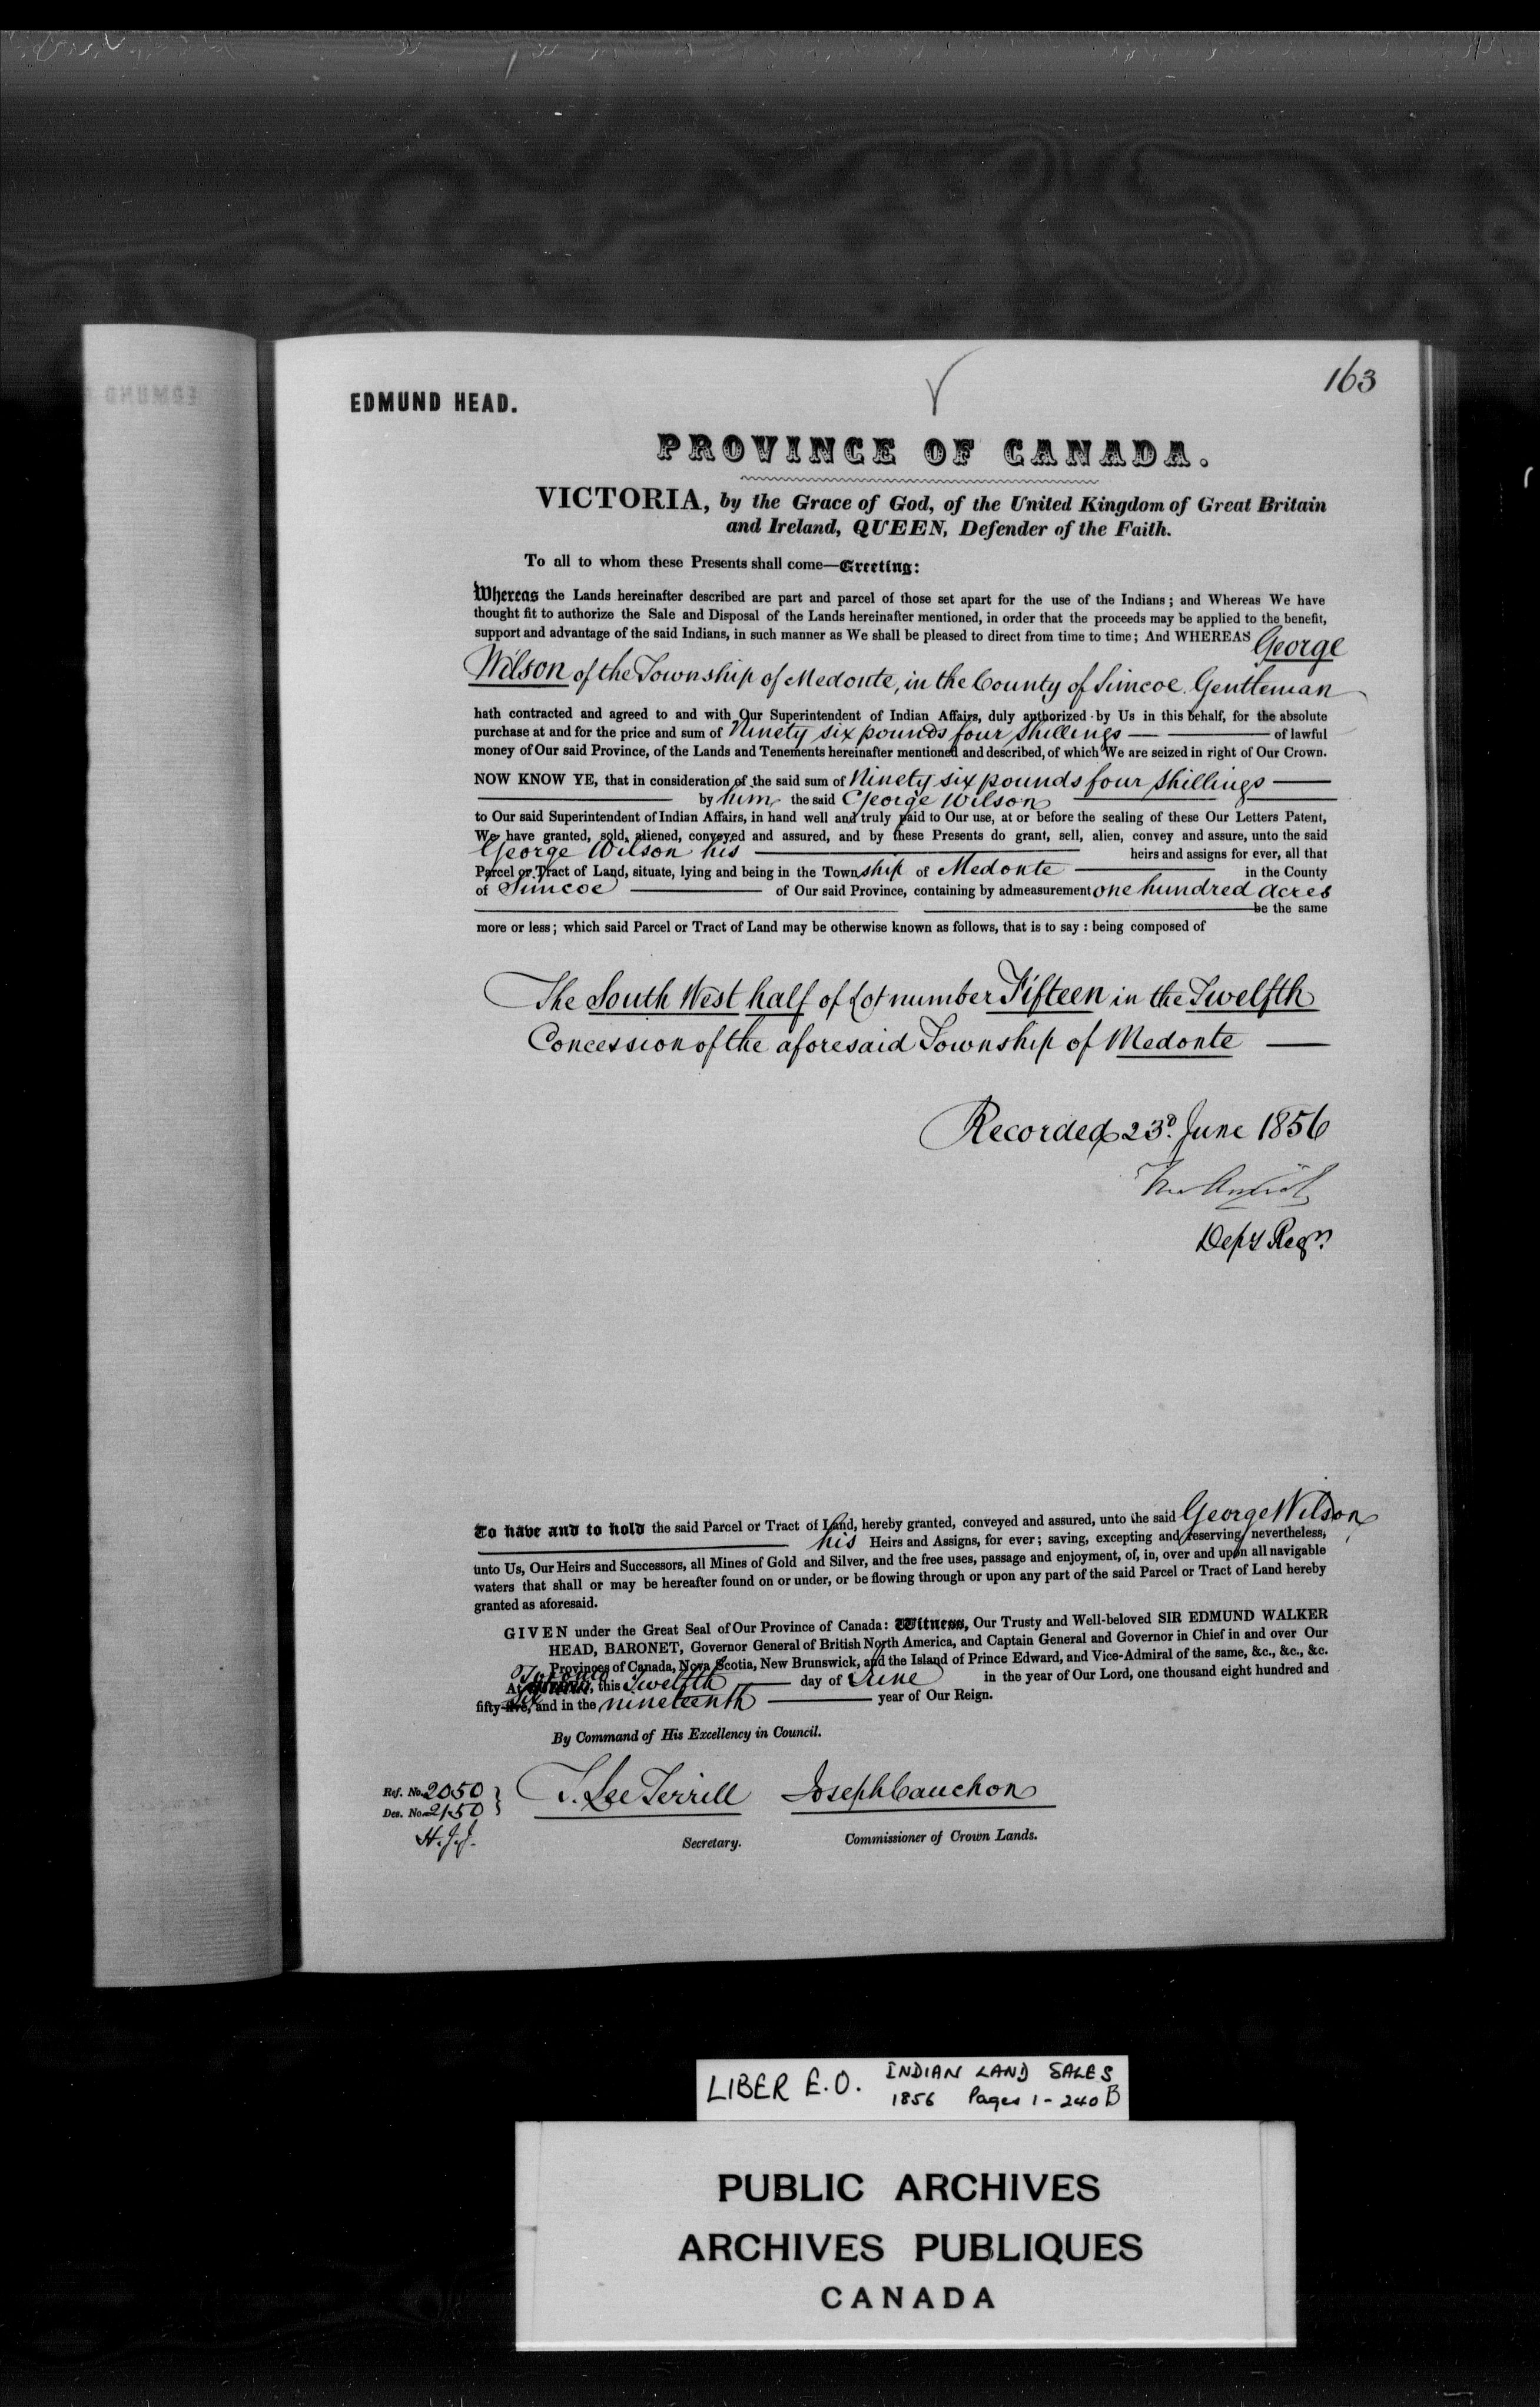 163
EDMUND HEAD.
PROVINCE OF CANADA.
VICTORIA, by the Grace of God, of the United Kingdom of Great Britain
and Ireland, QUEEN, Defender of the Faith.
To all to whom these Presents shall come—Greeting:
Whereas the Lands hereinafter described are part and parcel of those set apart for the use of the Indians; and Whereas We have
thought fit to authorize the Sale and Disposal of the Lands hereinafter mentioned, in order that the proceeds may be applied to the benefit,
support and advantage of the said Indians, in such manner as We shall be pleased to direct from time to time; And WHEREAS George
Wilson of the Township of Medonte, in the County of Simcoe. Gentleman
hath contracted and agreed to and with Our Superintendent of Indian Affairs, duly authorized by Us in this behalf, for the absolute
purchase at and for the price and sum of Ninety six pounds four shillings — of lawful
money of Our said Province, of the Lands and Tenements hereinafter mentioned and described, of which We are seized in right of Our Crown.
NOW KNOW YE, that in consideration of the said sum of Ninety six pounds four shillings —
by him the said George Wilson
to Our said Superintendent of Indian Affairs, in hand well and truly paid to Our use, at or before the sealing of these Our Letters Patent,
We have granted, sold, aliened, conveyed and assured, and by these Presents do grant, sell, alien, convey and assure, unto the said
George Wilson his — heirs and assigns for ever, all that
Parcel or Tract of Land, situate, lying and being in the Township of Medonte — in the County
of Simcoe — of Our said Province, containing by admeasurement one hundred acres
be the same
more or less; which said Parcel or Tract of Land may be otherwise known as follows, that is to say: being composed of
The South West half of Lot number Fifteen in the Twelfth
Concession of the aforesaid Township of Medonte —
Recorded 23d. June 1856
Depy Regr.
To have and to hold the said Parcel or Tract of Land, hereby granted, conveyed and assured, unto the said George Wilson
his Heirs and Assigns, for ever; saving, excepting and reserving, nevertheless,
unto Us, Our Heirs and Successors, all Mines of Gold and Silver, and the free uses, passage and enjoyment, of, in, over and upon all navigable
waters that shall or may be hereafter found on or under, or be flowing through or upon any part of the said Parcel or Tract of Land hereby
granted as aforesaid.
GIVEN under the Great Seal of Our Province of Canada: Witness, Our Trusty and Well-beloved SIR EDMUND WALKER
HEAD, BARONET, Governor General of British North America, and Captain General and Governor in Chief in and over Our
Provinces of Canada, Nova Scotia, New Brunswick, and the Island of Prince Edward, and Vice-Admiral of the same, &c., &c., &c.
At Toronto, this Twelfth — day of June in the year of Our Lord, one thousand eight hundred and
fifty-six, and in the nineteenth — year of Our Reign.
By Command of His Excellency in Council.
Ref. No. 2050
Des. No. 2150
H.J.J.
T. Lee Terrill Joseph Cauchon
Secretary. Commissioner of Crown Lands.
LIBER E.O. INDIAN LAND SALES
1856 Pages 1-240B
PUBLIC ARCHIVES
ARCHIVES PUBLIQUES
CANADA